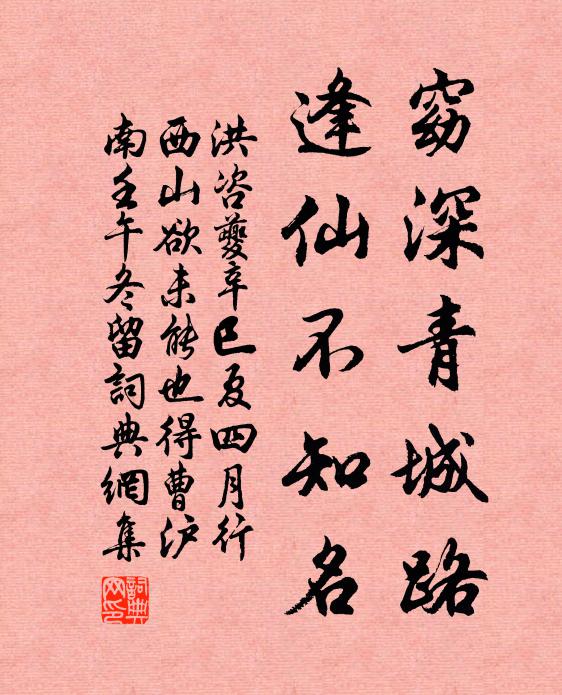 窈深青城路
逢仙不知名
洪咨夔辛巳夏四月行
西山欲未能也得曹沪
南壬午冬留詞典網集
詞典
网印